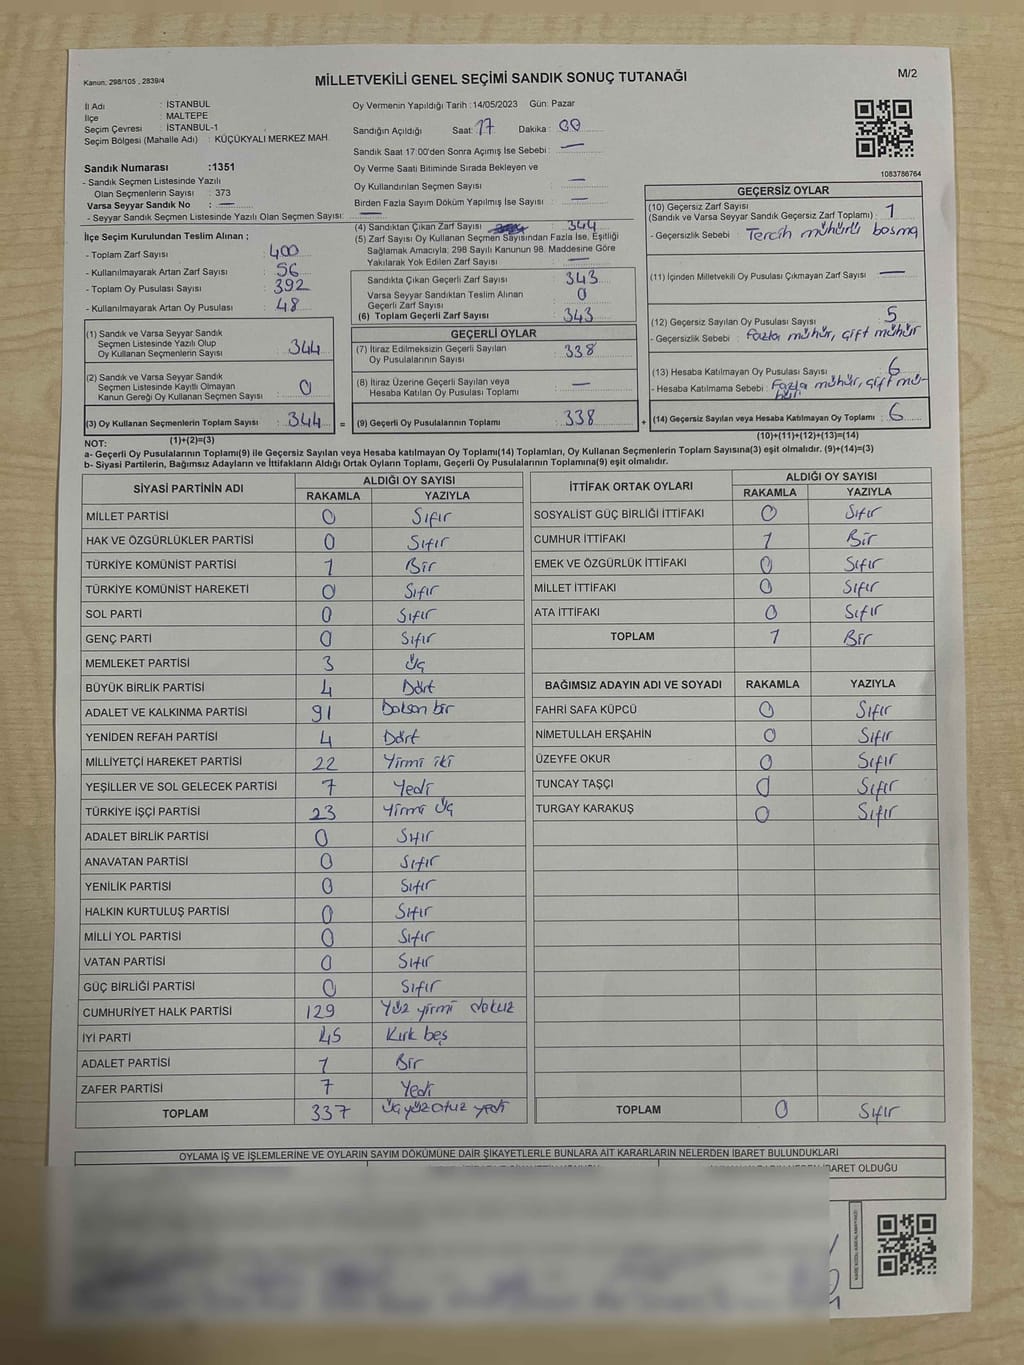 Kanun, 298/105 , 2839/4
MİLLETVEKİLİ GENEL SEÇİMİ SANDIK SONUÇ TUTANAĞI
M/2
İl Adı : İSTANBUL
İlçe : MALTEPE
Seçim Çevresi : İSTANBUL-1
Seçim Bölgesi (Mahalle Adı) : KÜÇÜKYALI MERKEZ MAH.
Sandık Numarası :1351
- Sandık Seçmen Listesinde Yazılı
Olan Seçmenlerin Sayısı : 373
Varsa Seyyar Sandık No : —
- Seyyar Sandık Seçmen Listesinde Yazılı Olan Seçmen Sayısı: —
İlçe Seçim Kurulundan Teslim Alınan ;
- Toplam Zarf Sayısı : 400
- Kullanılmayarak Artan Zarf Sayısı : 56
- Toplam Oy Pusulası Sayısı : 392
- Kullanılmayarak Artan Oy Pusulası : 48
(1) Sandık ve Varsa Seyyar Sandık
Seçmen Listesinde Yazılı Olup
Oy Kullanan Seçmenlerin Sayısı : 344
(2) Sandık ve Varsa Seyyar Sandık
Seçmen Listesinde Kayıtlı Olmayan
Kanun Gereği Oy Kullanan Seçmen Sayısı : 0
(3) Oy Kullanan Seçmenlerin Toplam Sayısı : 344
(1)+(2)=(3)
Oy Vermenin Yapıldığı Tarih :14/05/2023 Gün: Pazar
Sandığın Açıldığı Saat: 17 Dakika : 00
Sandık Saat 17:00'den Sonra Açımış İse Sebebi : —
Oy Verme Saati Bitiminde Sırada Bekleyen ve
Oy Kullandırılan Seçmen Sayısı : —
Birden Fazla Sayım Döküm Yapılmış İse Sayısı : —
(4) Sandıktan Çıkan Zarf Sayısı : 344
(5) Zarf Sayısı Oy Kullanan Seçmen Sayısından Fazla İse, Eşitliği
Sağlamak Amacıyla, 298 Sayılı Kanunun 98. Maddesine Göre
Yakılarak Yok Edilen Zarf Sayısı : —
Sandıkta Çıkan Geçerli Zarf Sayısı : 343
Varsa Seyyar Sandıktan Teslim Alınan
Geçerli Zarf Sayısı : 0
(6) Toplam Geçerli Zarf Sayısı : 343
GEÇERLİ OYLAR
(7) İtiraz Edilmeksizin Geçerli Sayılan
Oy Pusulalarının Sayısı : 338
(8) İtiraz Üzerine Geçerli Sayılan veya
Hesaba Katılan Oy Pusulası Toplamı : —
= (9) Geçerli Oy Pusulalarının Toplamı : 338 +
1083786764
GEÇERSİZ OYLAR
(10) Geçersiz Zarf Sayısı
(Sandık ve Varsa Seyyar Sandık Geçersiz Zarf Toplamı) : 1
- Geçersizlik Sebebi : Tercih mühürü basma
(11) İçinden Milletvekili Oy Pusulası Çıkmayan Zarf Sayısı : —
(12) Geçersiz Sayılan Oy Pusulası Sayısı : 5
- Geçersizlik Sebebi : Fazla mühür, çift mühür
(13) Hesaba Katılmayan Oy Pusulası Sayısı : 6
- Hesaba Katılmama Sebebi : Fazla mühür, çift mü-
hür
(14) Geçersiz Sayılan veya Hesaba Katılmayan Oy Toplamı : 6
(10)+(11)+(12)+(13)=(14)
NOT:
a- Geçerli Oy Pusulalarının Toplamı(9) ile Geçersiz Sayılan veya Hesaba katılmayan Oy Toplamı(14) Toplamları, Oy Kullanan Seçmenlerin Toplam Sayısına(3) eşit olmalıdır. (9)+(14)=(3)
b- Siyasi Partilerin, Bağımsız Adayların ve İttifakların Aldığı Ortak Oyların Toplamı, Geçerli Oy Pusulalarının Toplamına(9) eşit olmalıdır.
SİYASİ PARTİNİN ADI ALDIĞI OY SAYISI
RAKAMLA YAZIYLA
MİLLET PARTİSİ 0 Sıfır
HAK VE ÖZGÜRLÜKLER PARTİSİ 0 Sıfır
TÜRKİYE KOMÜNİST PARTİSİ 1 Bir
TÜRKİYE KOMÜNİST HAREKETİ 0 Sıfır
SOL PARTİ 0 Sıfır
GENÇ PARTİ 0 Sıfır
MEMLEKET PARTİSİ 3 Üç
BÜYÜK BİRLİK PARTİSİ 4 Dört
ADALET VE KALKINMA PARTİSİ 91 Doksan bir
YENİDEN REFAH PARTİSİ 4 Dört
MİLLİYETÇİ HAREKET PARTİSİ 22 Yirmi iki
YEŞİLLER VE SOL GELECEK PARTİSİ 7 Yedi
TÜRKİYE İŞÇİ PARTİSİ 23 Yirmi Üç
ADALET BİRLİK PARTİSİ 0 Sıfır
ANAVATAN PARTİSİ 0 Sıfır
YENİLİK PARTİSİ 0 Sıfır
HALKIN KURTULUŞ PARTİSİ 0 Sıfır
MİLLİ YOL PARTİSİ 0 Sıfır
VATAN PARTİSİ 0 Sıfır
GÜÇ BİRLİĞİ PARTİSİ 0 Sıfır
CUMHURİYET HALK PARTİSİ 129 Yüz yirmi dokuz
İYİ PARTİ 45 Kırk beş
ADALET PARTİSİ 1 Bir
ZAFER PARTİSİ 7 Yedi
TOPLAM 337 Üçyüzotuz yedi
İTTİFAK ORTAK OYLARI ALDIĞI OY SAYISI
RAKAMLA YAZIYLA
SOSYALİST GÜÇ BİRLİĞİ İTTİFAKI 0 Sıfır
CUMHUR İTTİFAKI 1 Bir
EMEK VE ÖZGÜRLÜK İTTİFAKI 0 Sıfır
MİLLET İTTİFAKI 0 Sıfır
ATA İTTİFAKI 0 Sıfır
TOPLAM 1 Bir
BAĞIMSIZ ADAYIN ADI VE SOYADI RAKAMLA YAZIYLA
FAHRİ SAFA KÜPCÜ 0 Sıfır
NİMETULLAH ERŞAHİN 0 Sıfır
ÜZEYFE OKUR 0 Sıfır
TUNCAY TAŞÇI 0 Sıfır
TURGAY KARAKUŞ 0 Sıfır
TOPLAM 0 Sıfır
OYLAMA İŞ VE İŞLEMLERİNE VE OYLARIN SAYIM DÖKÜMÜNE DAİR ŞİKAYETLERLE BUNLARA AİT KARARLARIN NELERDEN İBARET BULUNDUKLARI
İBARET OLDUĞU